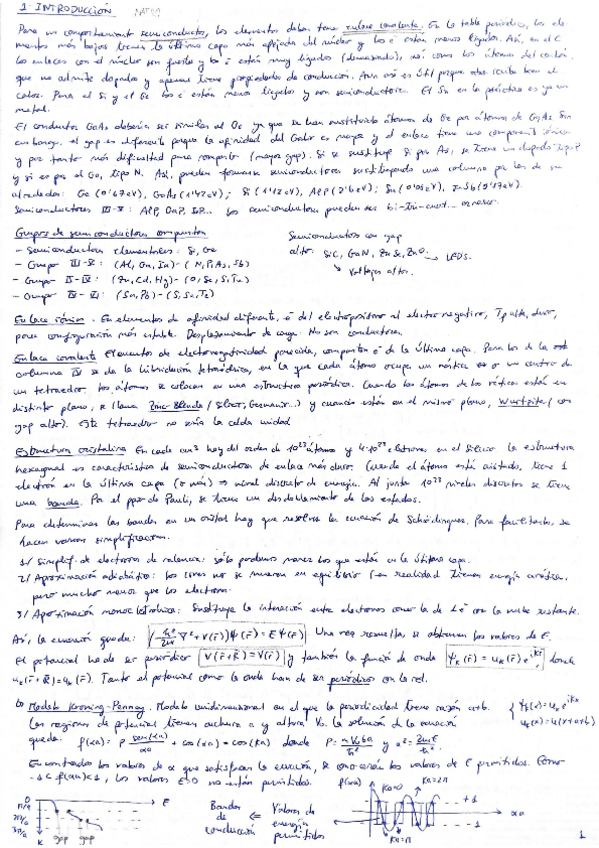 1. INTRODUCCIÓN
Para un comportamiento semiconductor, los elementos deben tener enlace covalente. En la tabla periódica, los ele
mentos más bajos tienen la última capa más alejada del núcleo y los e⁻ están menos ligados. Así, en el C
los enlaces con el núcleo son fuertes y los e⁻ están muy ligados (demasiado), así como los átomos del carbón
que no admite dopados y apenas tiene propiedades de conducción. Aun así es útil porque
calor. Para el Si y el Ge los e⁻ están menos ligados y son semiconductores. El Sn en la práctica es ya un
metal.
El conductor GaAs debería ser similar al Ge ya que se han sustituido átomos de Ge por átomos de GaAs. Sin
embargo, el gap es diferente porque la afinidad del es mayor y el enlace tiene una componente iónica
y por tanto más dificultad para romperlo (mayor gap). Si se sustituye por As, se tiene un dopado tipo
y si es por el Ga, tipo Así, pueden formarse semiconductores sustituyendo una columna por las de su
alrededor: Ge (0'67eV), GaAs (1'42eV); Si (1'12eV), AlP ; Sn , InSb (0'17eV).
Semiconductores III-V: AlP, GaP, Los semiconductores pueden ser
Grupos de semiconductores compuestos
- Semiconductores elementales: Si, Ge
- Grupo III-V: (Al, Ga, In)-(N, P, As, Sb)
- Grupo (Zn, Cd, Hg)-(O, Se, S, Te)
- Grupo (Sn, Pb)-(S, Se, Te)
Semiconductores con gap
alto: SiC, GaN, ZnSe, ZnO → LEDs.
↘ Voltajes altos.
Enlace iónico. En elementos de afinidad diferente, e⁻ del electropositivo al electronegativo, alto, duro,
para configuración más estable. Desplazamiento de carga. No son conductores.
Enlace covalente Elementos de electronegatividad parecida, comparten e⁻ de la última capa. Para los de la
columna IV se da la hibridación tetraédrica, en la que cada átomo ocupa un vértice o un centro de
un tetraedro. Los átomos se colocan en una estructura periódica. Cuando los átomos de los vértices están en
distinto plano, se llama Zinc-Blenda (Silicio, Germanio...) y cuando están en el mismo plano, Wurtzita (con
gap alto). Este tetraedro no sería la celda unidad
Estructura cristalina En cada cm³ hay del orden de 10²³ átomos y 4·10²³ electrones en el Silicio. La estructura
hexagonal es característica de semiconductores de enlace más duro. Cuando el átomo está aislado, tiene 1
electrón en la última capa (o más) ⇒ nivel discreto de energía. Al juntar 10²³ niveles discretos se tiene
una banda. Por el ppio de Pauli, se tiene un desdoblamiento de los estados.
Para determinar las bandas en un cristal hay que resolver la ecuación de Schrödinger. Para facilitarlo, se
hacen varias simplificaciones.
1/ Simplif. de electrones de valencia: sólo podemos mover los que están en la última capa.
2/ Aproximación adiabática: Los iones no se mueven en equilibrio (en realidad tienen energía cinética,
pero mucho menos que los electrones.
3/ Aproximación monoelectrónica: Sustituye la interacción entre electrones como la de 1 e⁻ con la nube restante.
Así, la ecuación queda: (-ħ²/2m ∇² + V(r̄))ψ(r̄) = Eψ(r̄) Una vez resuelta, se obtienen los valores de E.
El potencial ha de ser periódico V(r̄+R̄) = V(r̄) y también la función de onda ψ_K(r̄) = u_K(r̄)e^{ik̄r̄}, donde
u_K(r̄+R̄) = u_K(r̄). Tanto el potencial como la onda han de ser periódicos con la red.
Modelo Kroning-Penney. Modelo unidimensional en el que la periodicidad tiene razón a+b.
Las regiones de potencial tienen anchura a y altura V₀. La solución de la ecuación
queda: f(αa) = P sen(αa)/αa + cos(αa) = cos(Ka) donde P = mV₀ba/ħ² y α² = 2mE/ħ².
ψ_K(x) = u_K e^{ikx}
u_K(x) = u(x+a+b)
Encontrados los valores de α que satisfagan la ecuación, se conocerán los valores de E permitidos. Como
-1 ≤ f(αa) ≤ 1, los valores no están permitidos.
0
π/a
2π/a
3π/a
K
E
gap gap
Bandas de conducción ⇐ Valores de energía permitidos
f(αa)
Ka=0
Ka=2π
+1
-1
αa
Ka=π
1